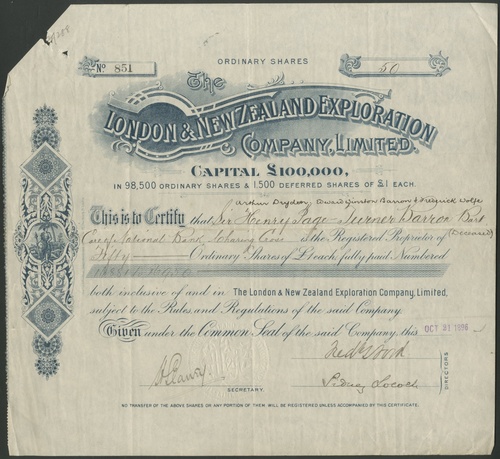 ORDINARY SHARES
No 851
50
The
LONDON & NEW ZEALAND EXPLORATION
COMPANY, LIMITED.
CAPITAL £100,000,
IN 98,500 ORDINARY SHARES & 1,500 DEFERRED SHARES OF £1 EACH.
Arthur Dryden, Edward Gunston Barron & Frederick Wolfe
This is to Certify that Sir Henry Page-Turner Barron Bart
(Deceased)
Care of National Bank, Charing Cross is the Registered Proprietor of
Fifty Ordinary Shares of £1 each, fully paid Numbered
both inclusive of and in The London & New Zealand Exploration Company, Limited,
subject to the Rules and Regulations of the said Company.
Given under the Common Seal of the said Company, this OCT 31 1896
SECRETARY.
DIRECTORS
NO TRANSFER OF THE ABOVE SHARES OR ANY PORTION OF THEM WILL BE REGISTERED UNLESS ACCOMPANIED BY THIS CERTIFICATE.